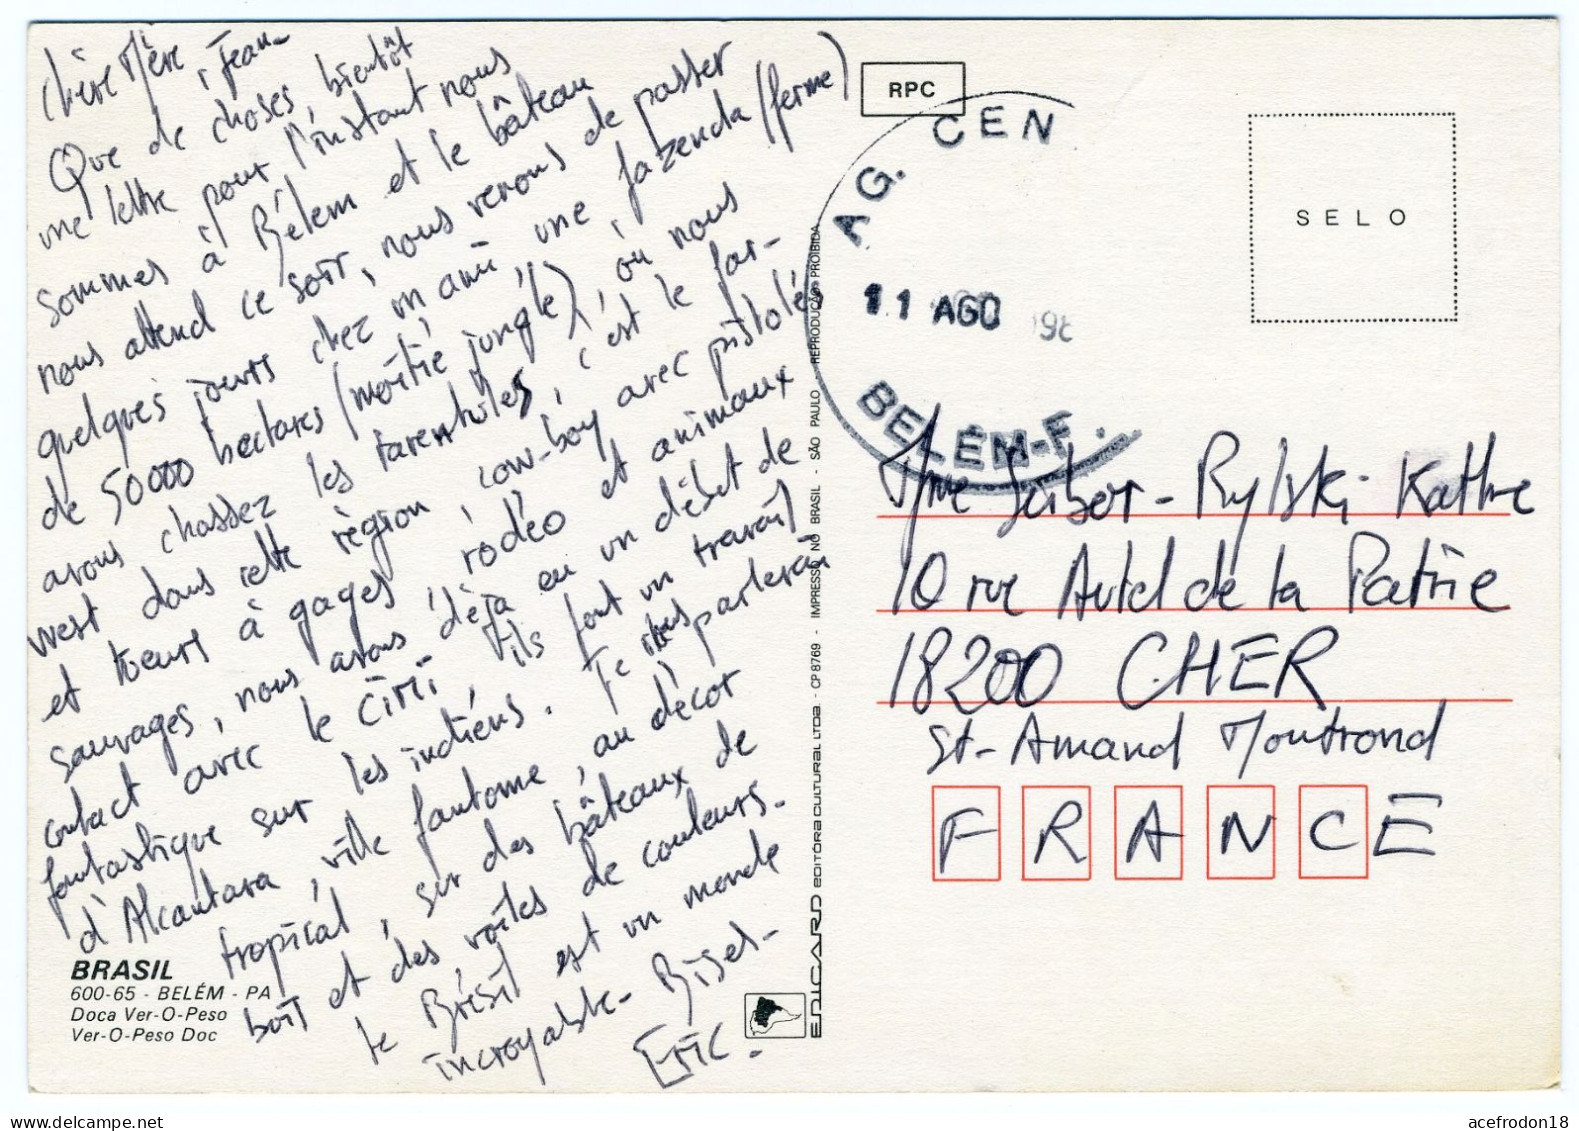 Chère Mère, Jean-
Que de choses, bientôt
une lettre pour l'instant nous
sommes à Bélem et le bâteau
nous attend ce soir, nous venons de passer
quelques jours chez un ami, une fazenda (ferme)
de 50000 hectares (moitié jungle), où nous
avons chassez les tarentules, c'est le far-
west dans cette région cow-boy avec pistolés
et tueurs à gages, rodéo et animaux
sauvages, nous avons déjà eu un début de
contact avec le CIMI, ils font un travail
fantastique sur les indiens. Je vous parlerai
d'Alcantara, ville fantome, au décor
tropical, sur des bâteaux de
boit et des voiles de couleurs.
le Brésil est un monde
incroyable - Bises -
Eric.
BRASIL
600-65 - BELÉM - PA
Doca Ver-O-Peso
Ver-O-Peso Doc
EDICARD EDITORA CULTURAL LTDA - CP 8769 - IMPRESSO NO BRASIL - SÃO PAULO - REPRODUÇÃO PROIBIDA
RPC
AG. CEN
11 AGO 198
BELÉM-F.
SELO
Mme Rylski Kathe
10 rue Autel de la Patrie
18200 CHER
St-Amand Montrond
FRANCE
acefrodon18